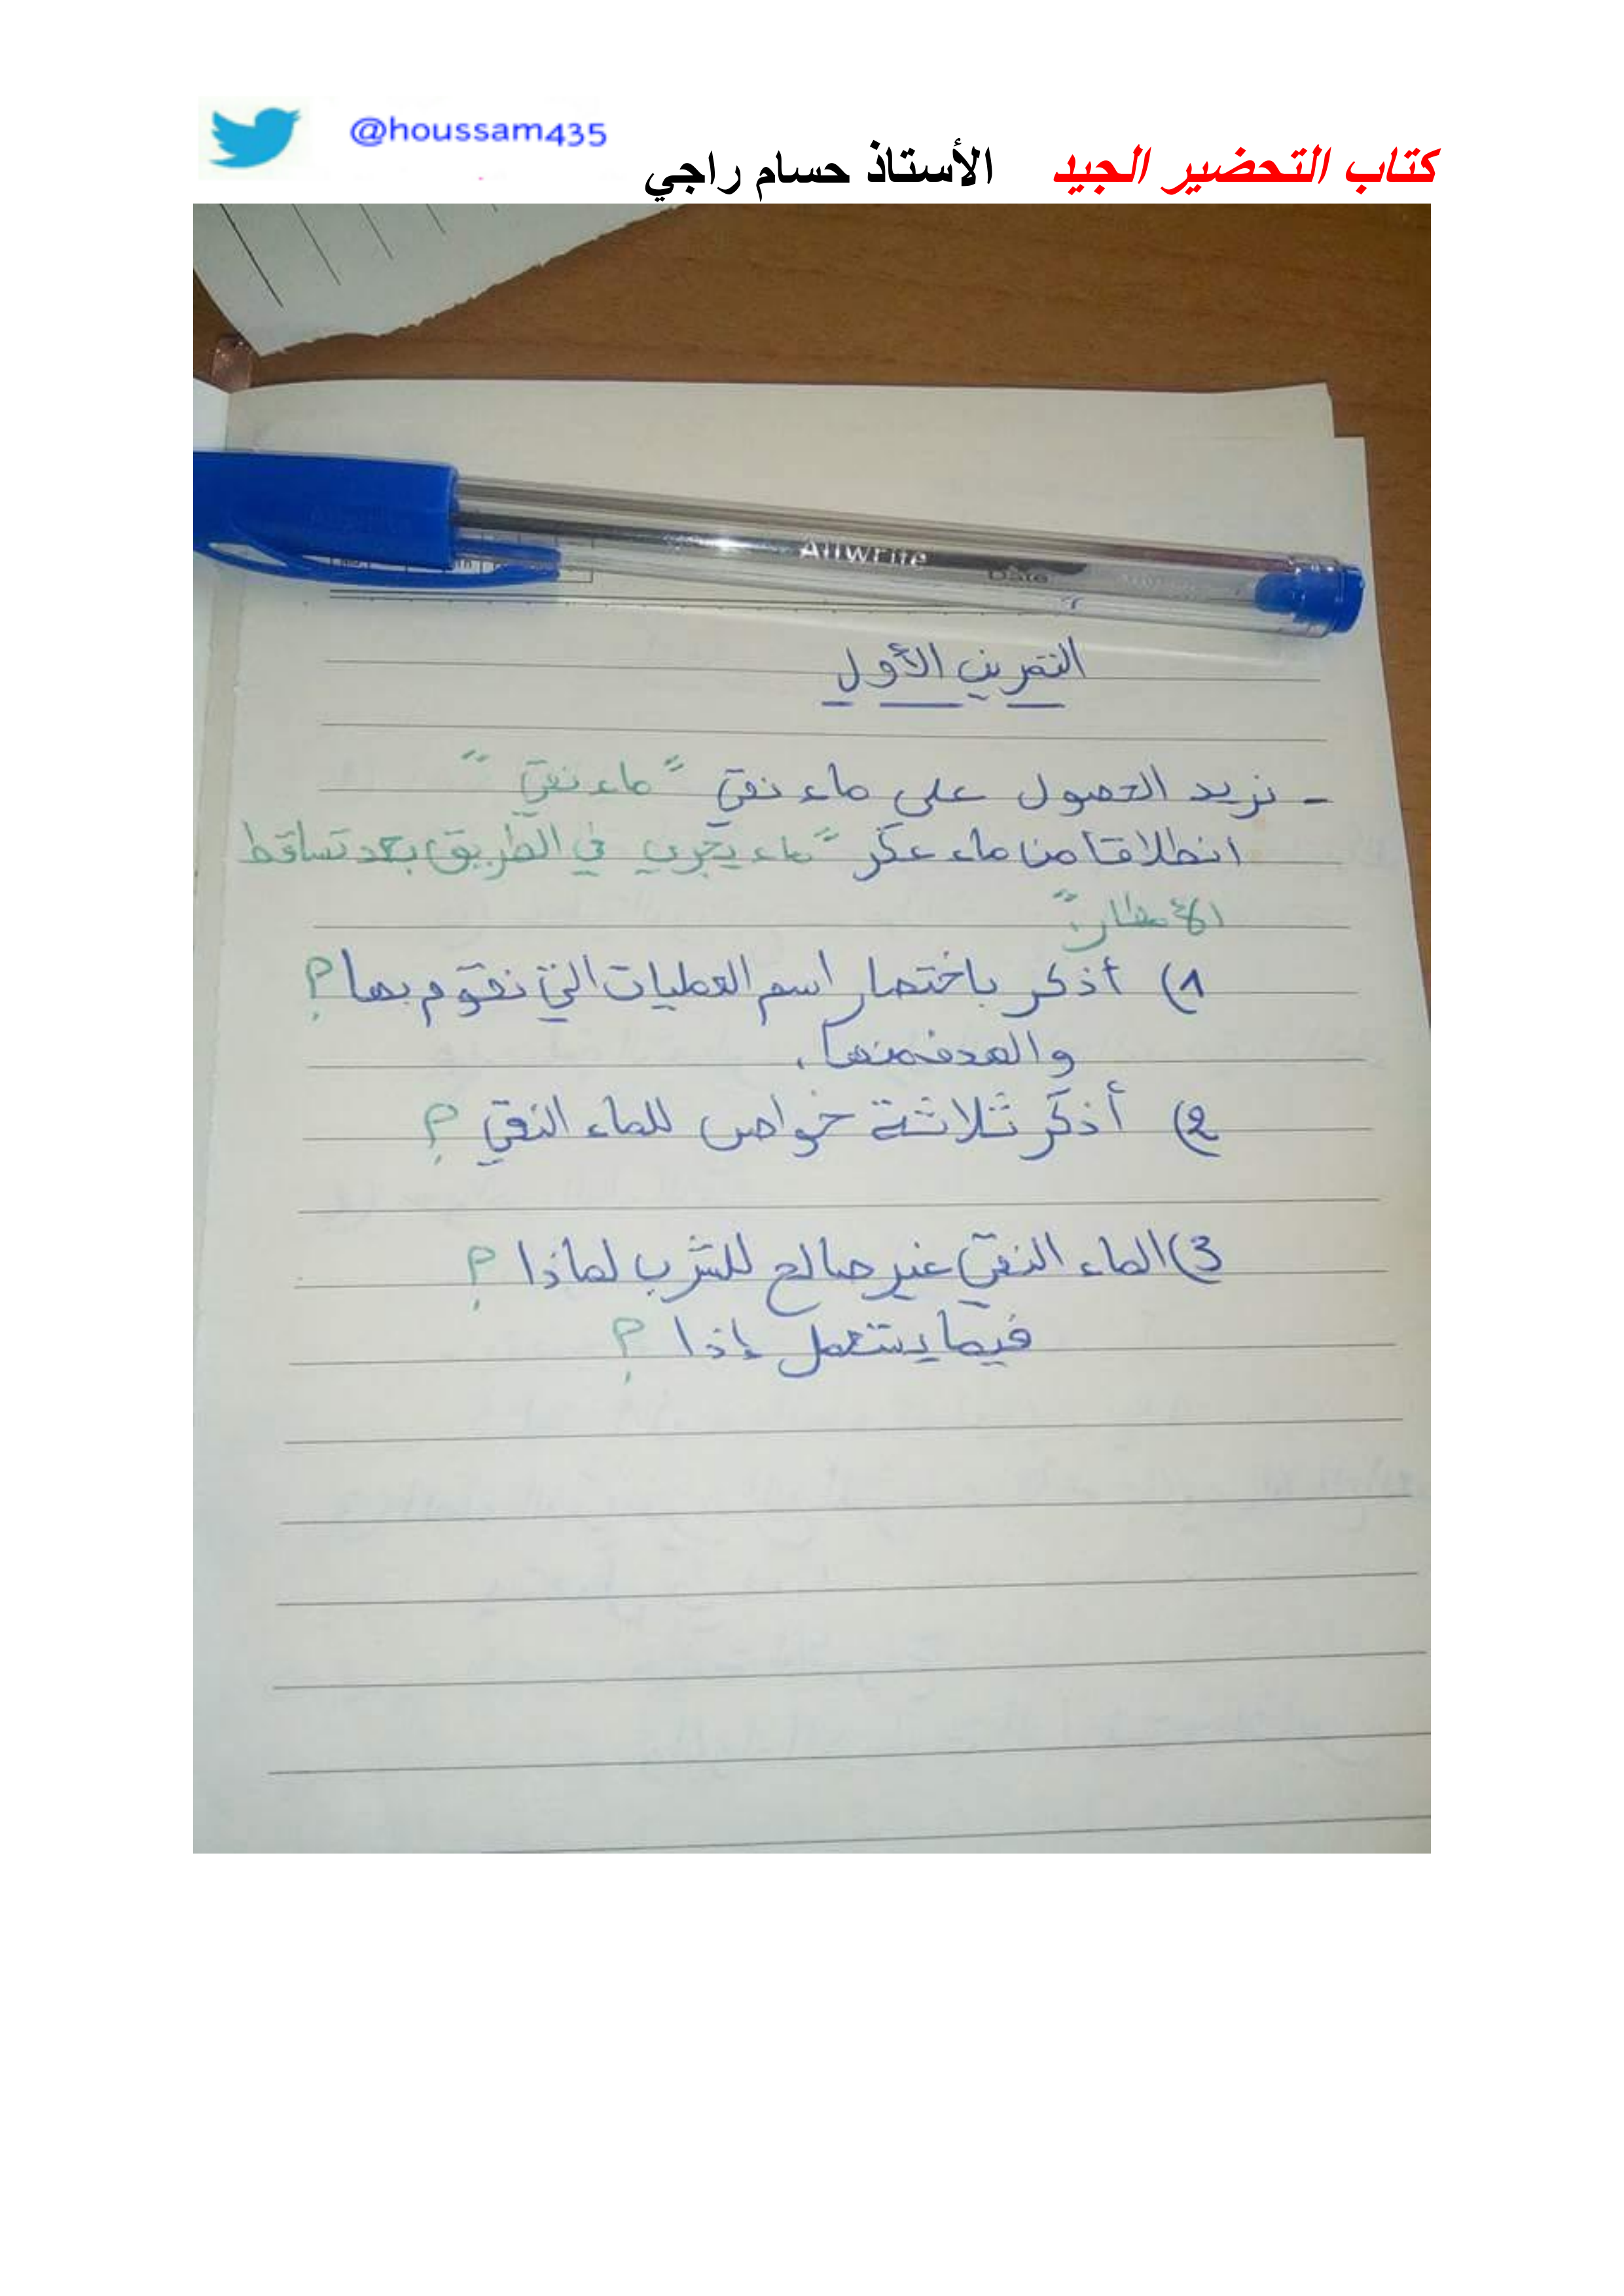 @houssam435
كتاب التحضير الجيد الأستاذ حسام راجي
Allwrite
Date
التمرين الأول
- نريد الحصول على ماء نقيّ "ماء نقيّ"
انطلاقا من ماء عكر "ماء يجري في الطريق بعد تساقط
الأمطار"
1) أذكر باختصار اسم العمليات التي نقوم بها؟
والهدف منها.
2) أذكر ثلاثة خواص للماء النقي؟
3) الماء النقيّ غير صالح للشرب لماذا؟
فيما يستعمل إذا؟